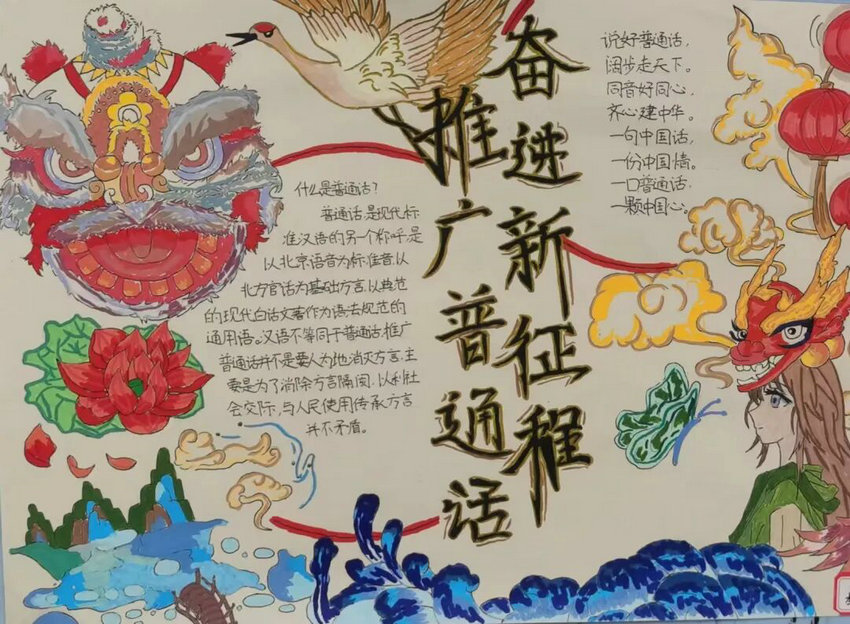 推广普通话
奋进新征程
什么是普通话?
普通话是现代标
准汉语的另一个称呼,是
以北京语音为标准音以
北方官话为基础方言,以典范
的现代白话文著作为语法规范的
通用语。汉语不等同于普通话,推广
普通话并不是要人为地消灭方言,主
要是为了消除方言隔阂,以利社
会交际,与人民使用传承方言
并不矛盾。
说好普通话,
阔步走天下。
同音好同心,
齐心建中华。
一句中国话,
一份中国情。
一口普通话,
一颗中国心。